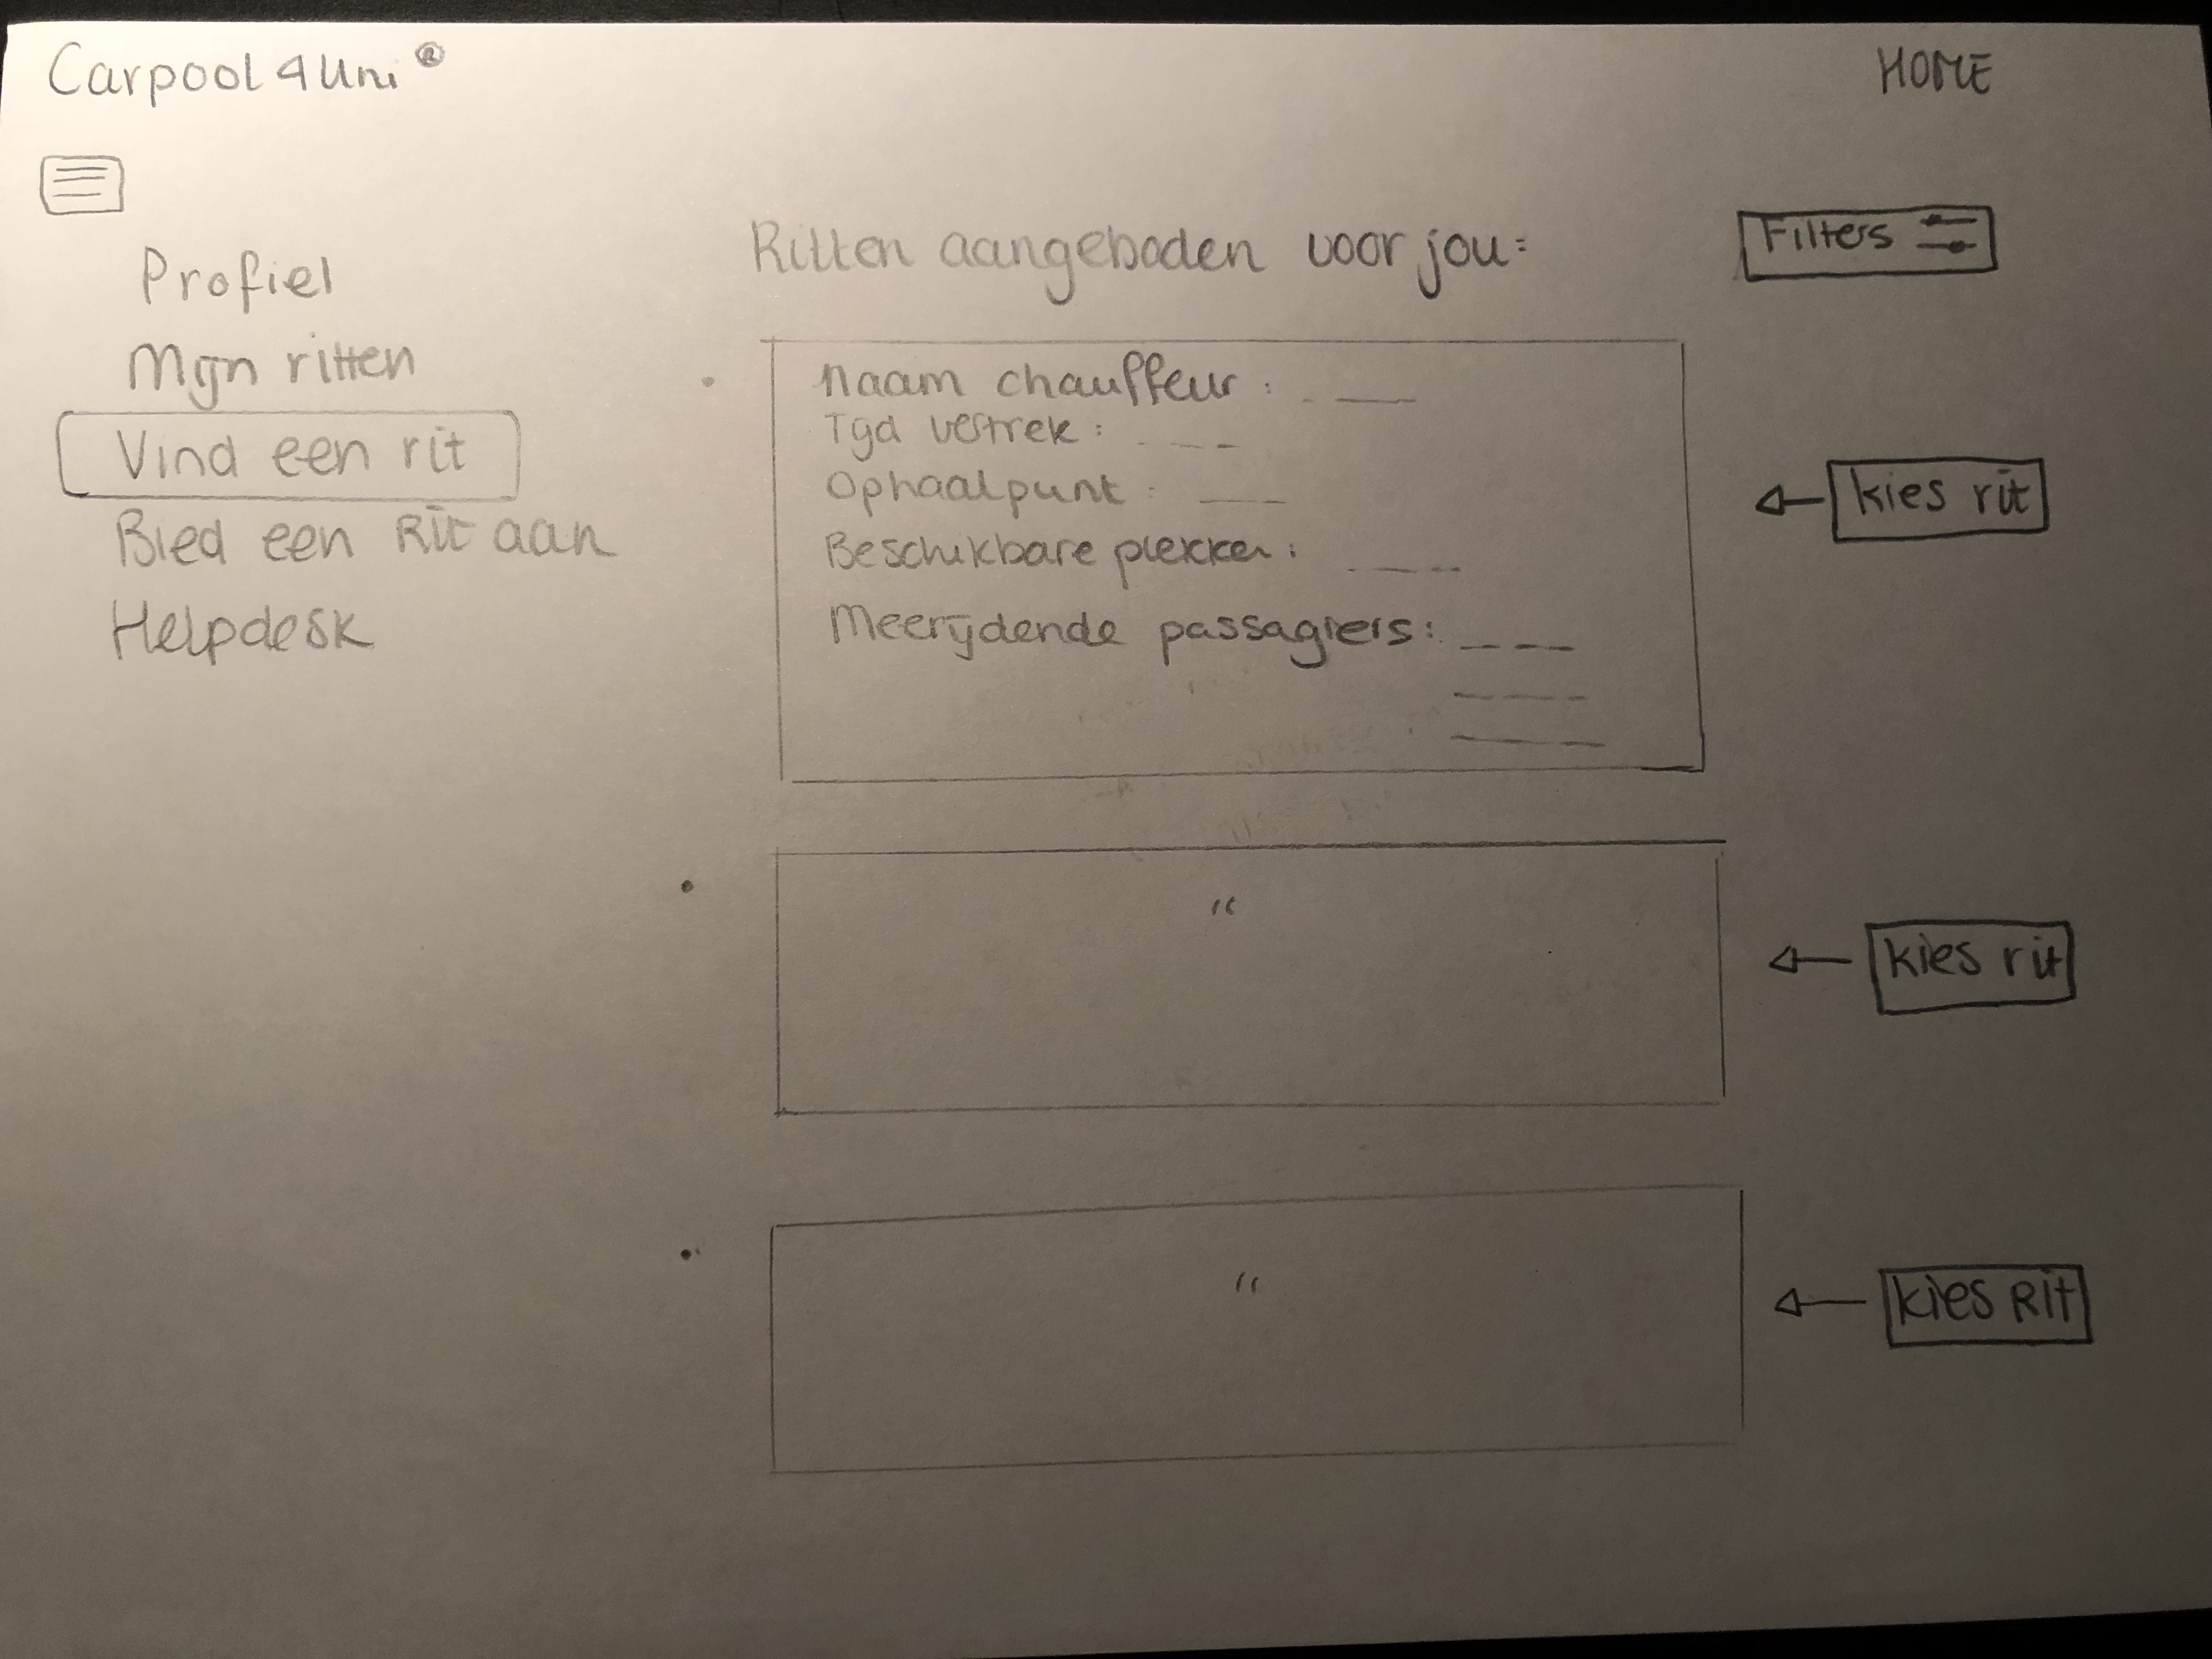 Carpool 4 Uni ®
HOME
Profiel
Mijn ritten
Vind een rit
Bied een Rit aan
Helpdesk
Ritten aangeboden voor jou:
Filters
Naam chauffeur :
Tijd vertrek :
Ophaalpunt :
Beschikbare plekken :
Meerijdende passagiers :
kies rit
"
kies rit
"
kies Rit